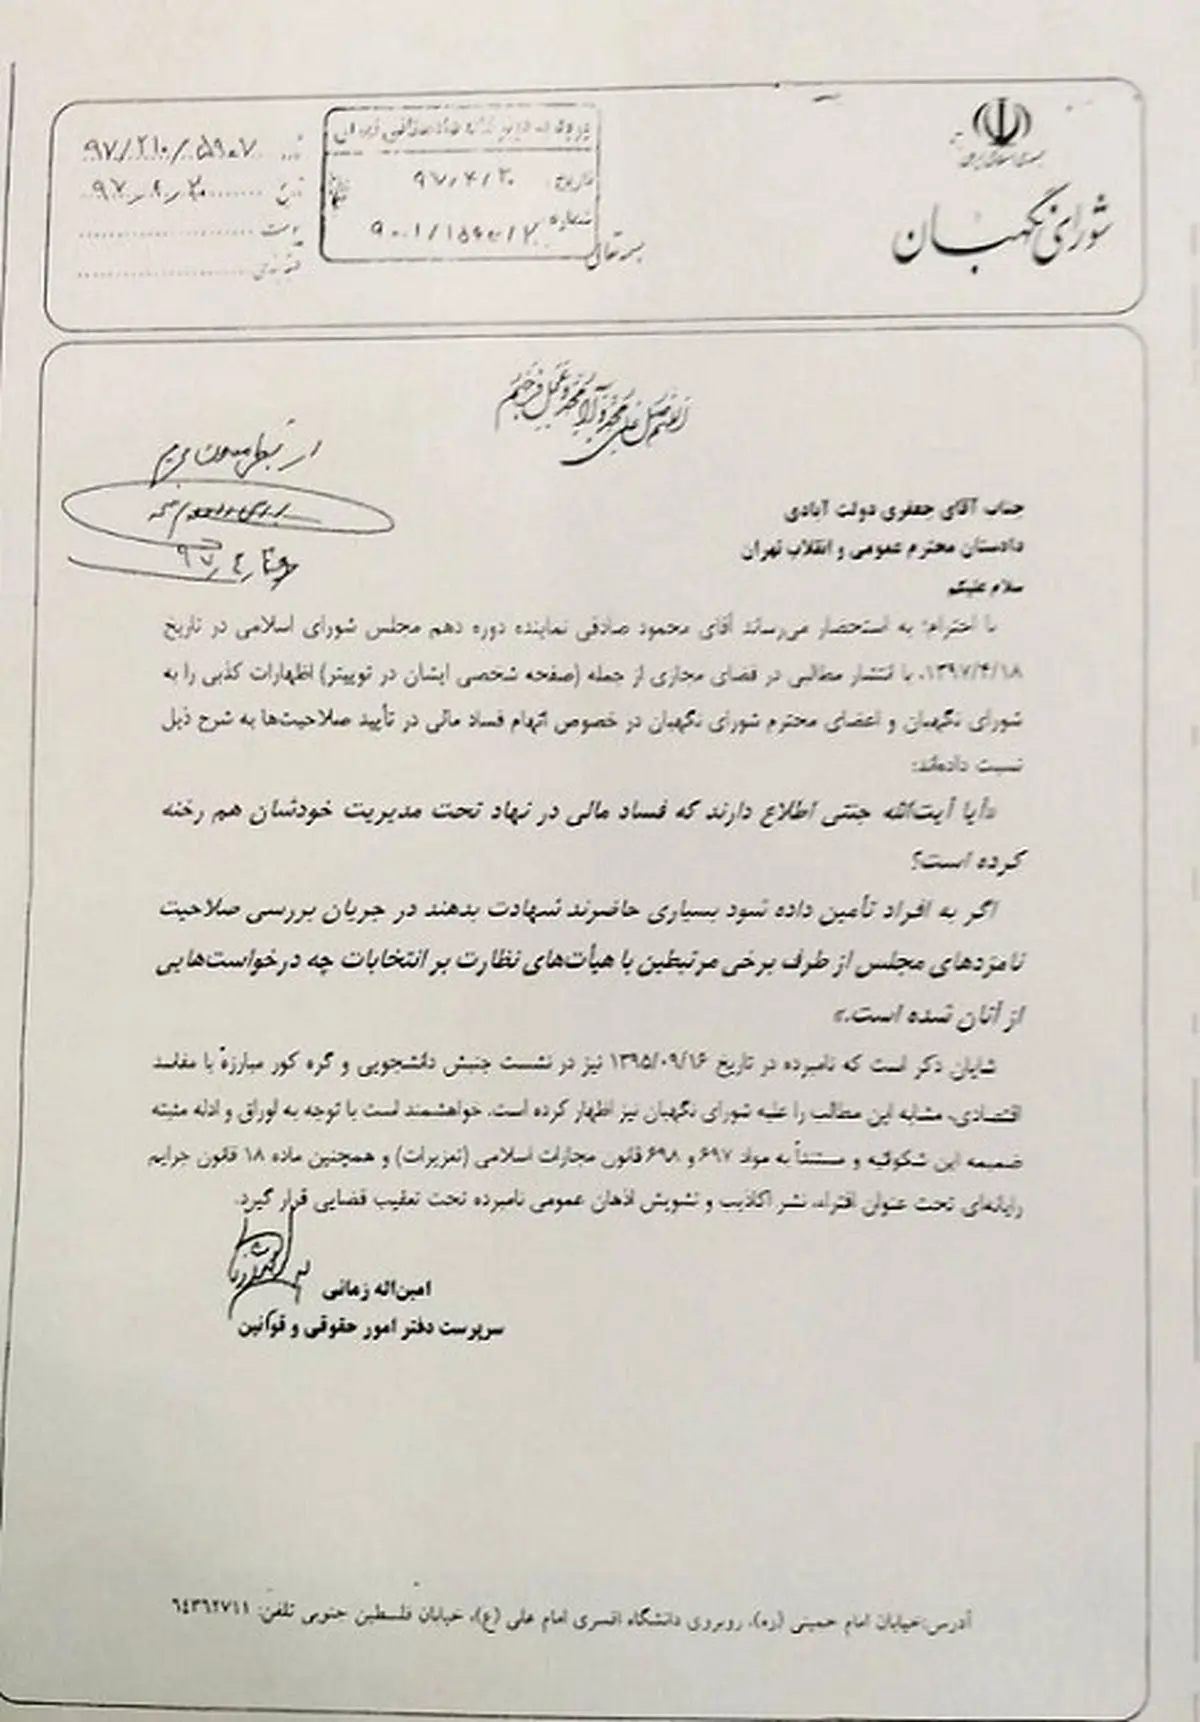 جمهوری اسلامی ایران
شورای نگهبان
بسمه تعالی
تاریخ: ۹۷/۴/۲۰
شماره:
۹۷/۲۱۰/۵۹۰۷
تاریخ
پیوست
اللهم صل علی محمد و آل محمد و عجل فرجهم
جناب آقای جعفری دولت آبادی
دادستان محترم عمومی و انقلاب تهران
سلام علیکم
با احترام؛ به استحضار می‌رساند آقای محمود صادقی نماینده دوره دهم مجلس شورای اسلامی در تاریخ
۱۳۹۷/۴/۱۸، با انتشار مطالبی در فضای مجازی از جمله (صفحه شخصی ایشان در توییتر) اظهارات کذبی را به
شورای نگهبان و اعضای محترم شورای نگهبان در خصوص اتهام فساد مالی در تأیید صلاحیت‌ها به شرح ذیل
نسبت داده‌اند:
«آیا آیت‌الله جنتی اطلاع دارند که فساد مالی در نهاد تحت مدیریت خودشان هم رخنه
کرده است؟
اگر به افراد تأمین داده شود بسیاری حاضرند شهادت بدهند در جریان بررسی صلاحیت
نامزدهای مجلس از طرف برخی مرتبطین با هیأت‌های نظارت بر انتخابات چه درخواست‌هایی
از آنان شده است.»
شایان ذکر است که نامبرده در تاریخ ۱۳۹۵/۰۹/۱۶ نیز در نشست جنبش دانشجویی و گره کور مبارزه با مفاسد
اقتصادی، مشابه این مطالب را علیه شورای نگهبان نیز اظهار کرده است. خواهشمند است با توجه به اوراق و ادله مثبته
ضمیمه این شکوائیه و مستنداً به مواد ۶۹۷ و ۶۹۸ قانون مجازات اسلامی (تعزیرات) و همچنین ماده ۱۸ قانون جرایم
رایانه‌ای تحت عنوان افتراء، نشر اکاذیب و تشویش اذهان عمومی نامبرده تحت تعقیب قضایی قرار گیرد.
امین‌اله زمانی
سرپرست دفتر امور حقوقی و قوانین
آدرس:خیابان امام خمینی (ره)، روبروی دانشگاه افسری امام علی (ع)، خیابان فلسطین جنوبی تلفن: ۶۴۳۶۲۷۱۱